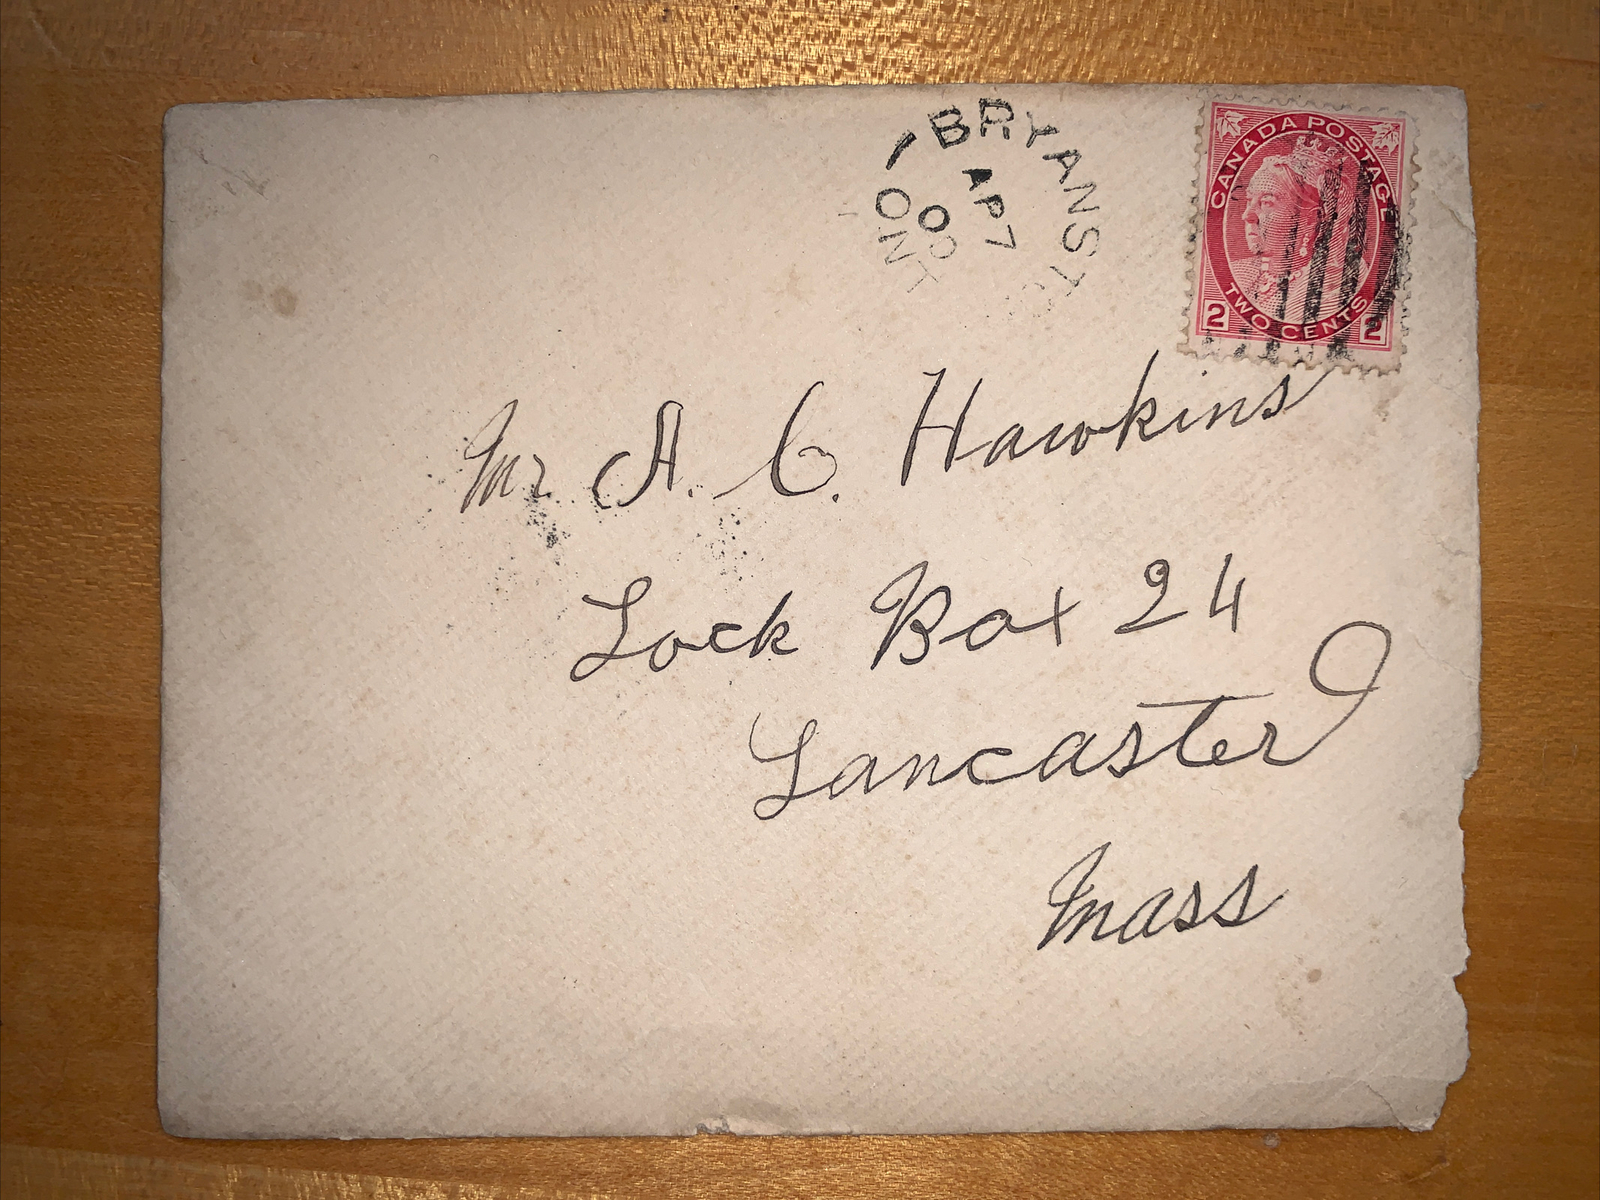 BRYANST
AP 7
00
ONT
CANADA POSTAGE
TWO CENTS
2 2
Mr A. C. Hawkins
Lock Box 24
Lancaster
Mass